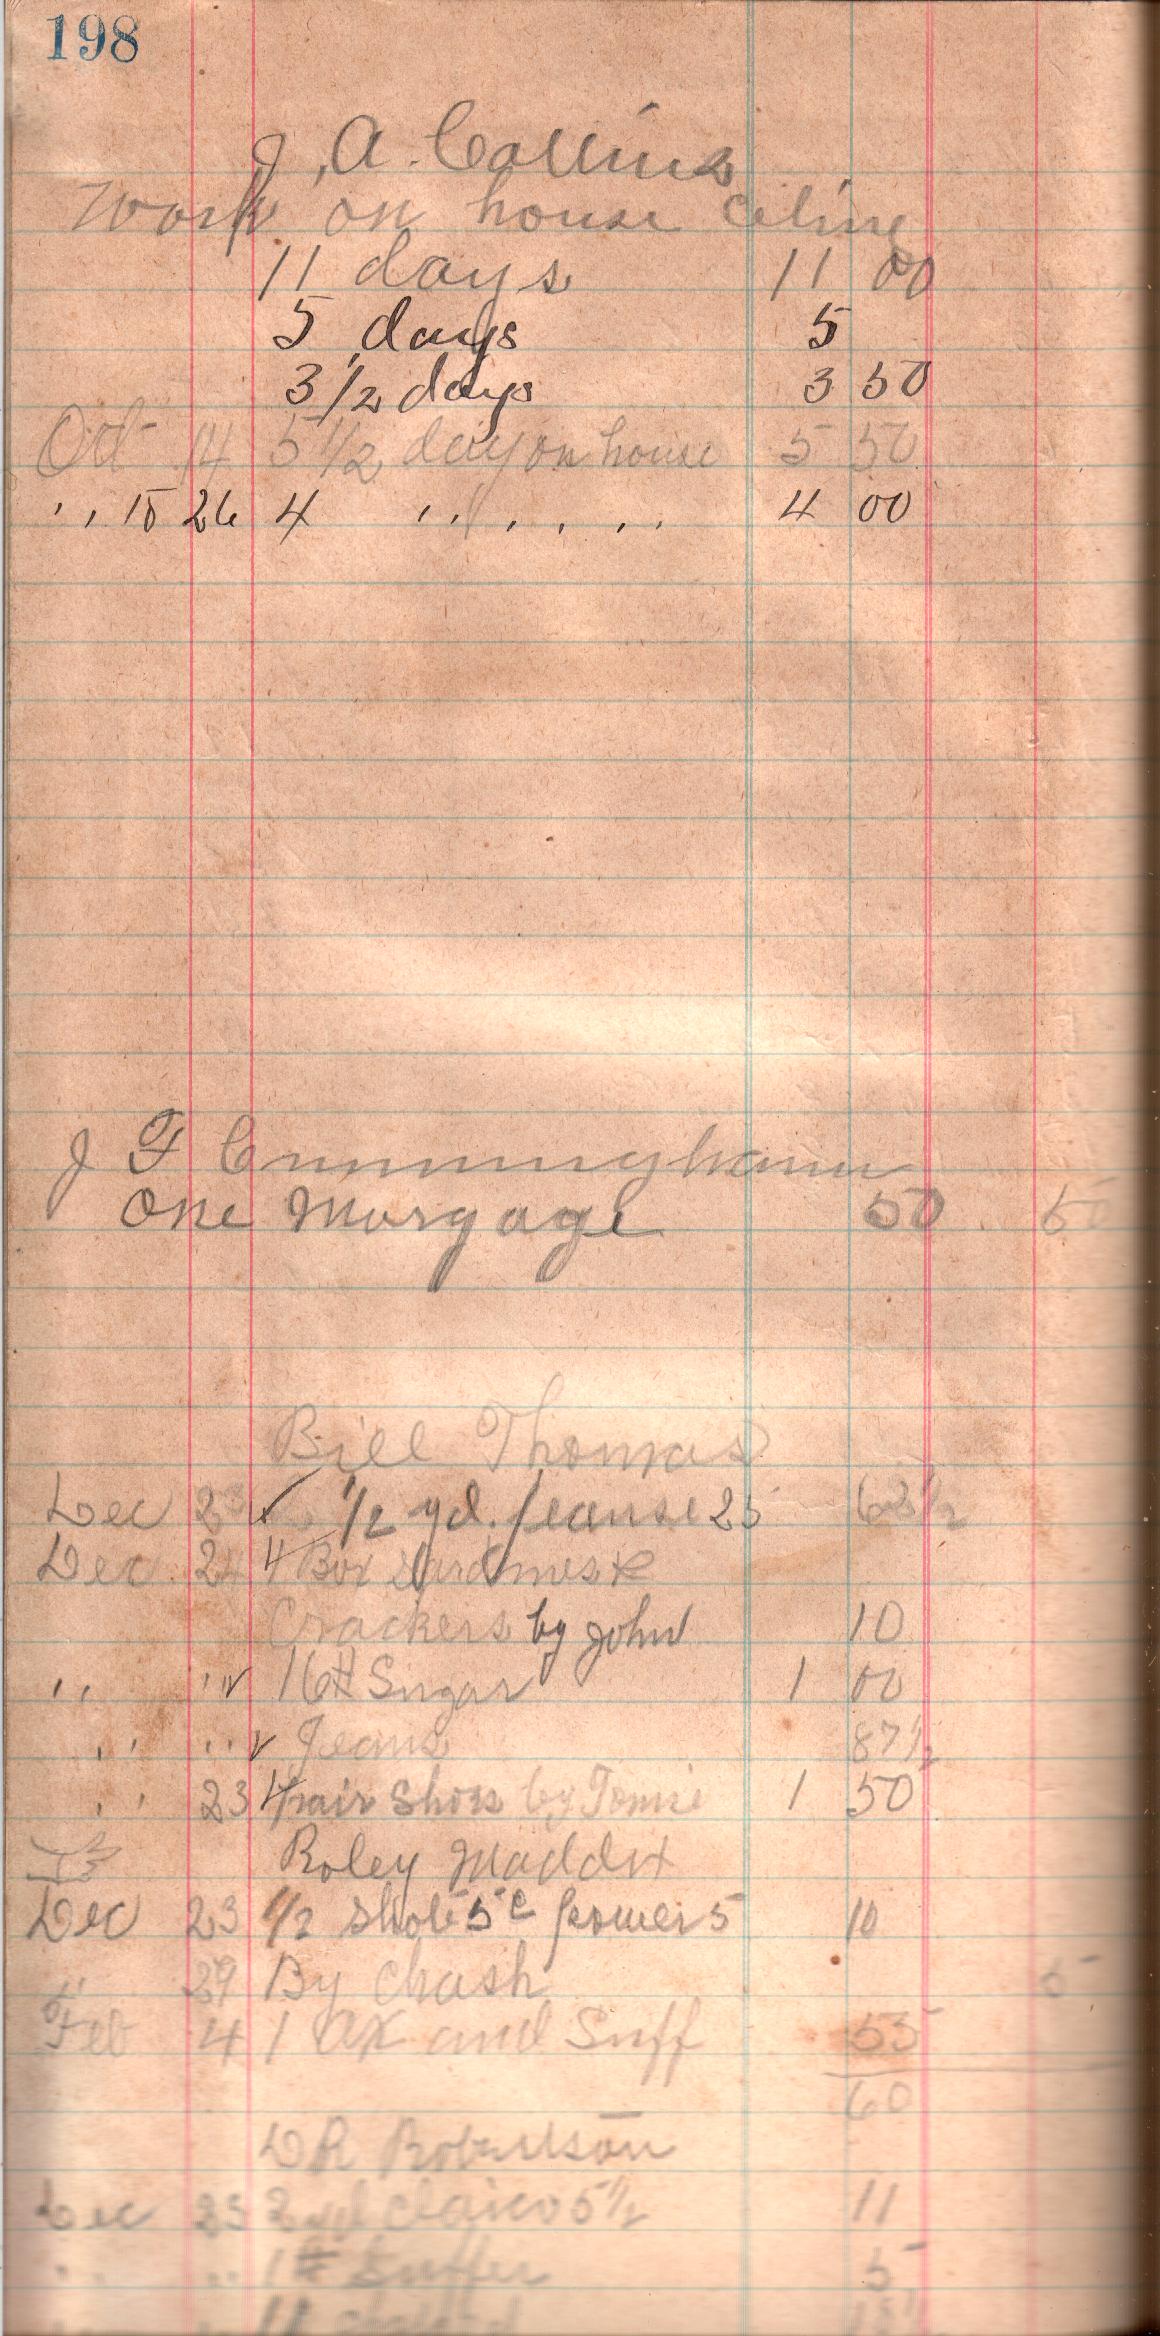 198
J. A. Collins
Work on house Celing
11 days 11 00
5 days 5
3 1/2 days 3 50
Oct 14 5 1/2 day on house 5 50
" 15 26 4 " " " " 4 00
J F Cunningham
One Morgage 50 50
Bill Thomas
Dec 23 ✓ 1/2 yd. Jeanse 25 62 1/2
Dec 24 Box Sardines &
Crackers by John 10
" " ✓ 16# Sugar 1 00
" " ✓ Jeans 87 1/2
" 23 pair Shoes by Tomie 1 50
Roley Maddox
Dec 23 1/2 Shot 5c powder 5 10
" 29 By Chash 5
Feb 4 1 AX and Snff 55
60
D R Robertson
Dec 25 2 yd Claico 5 1/2 11
" " 1 # 5